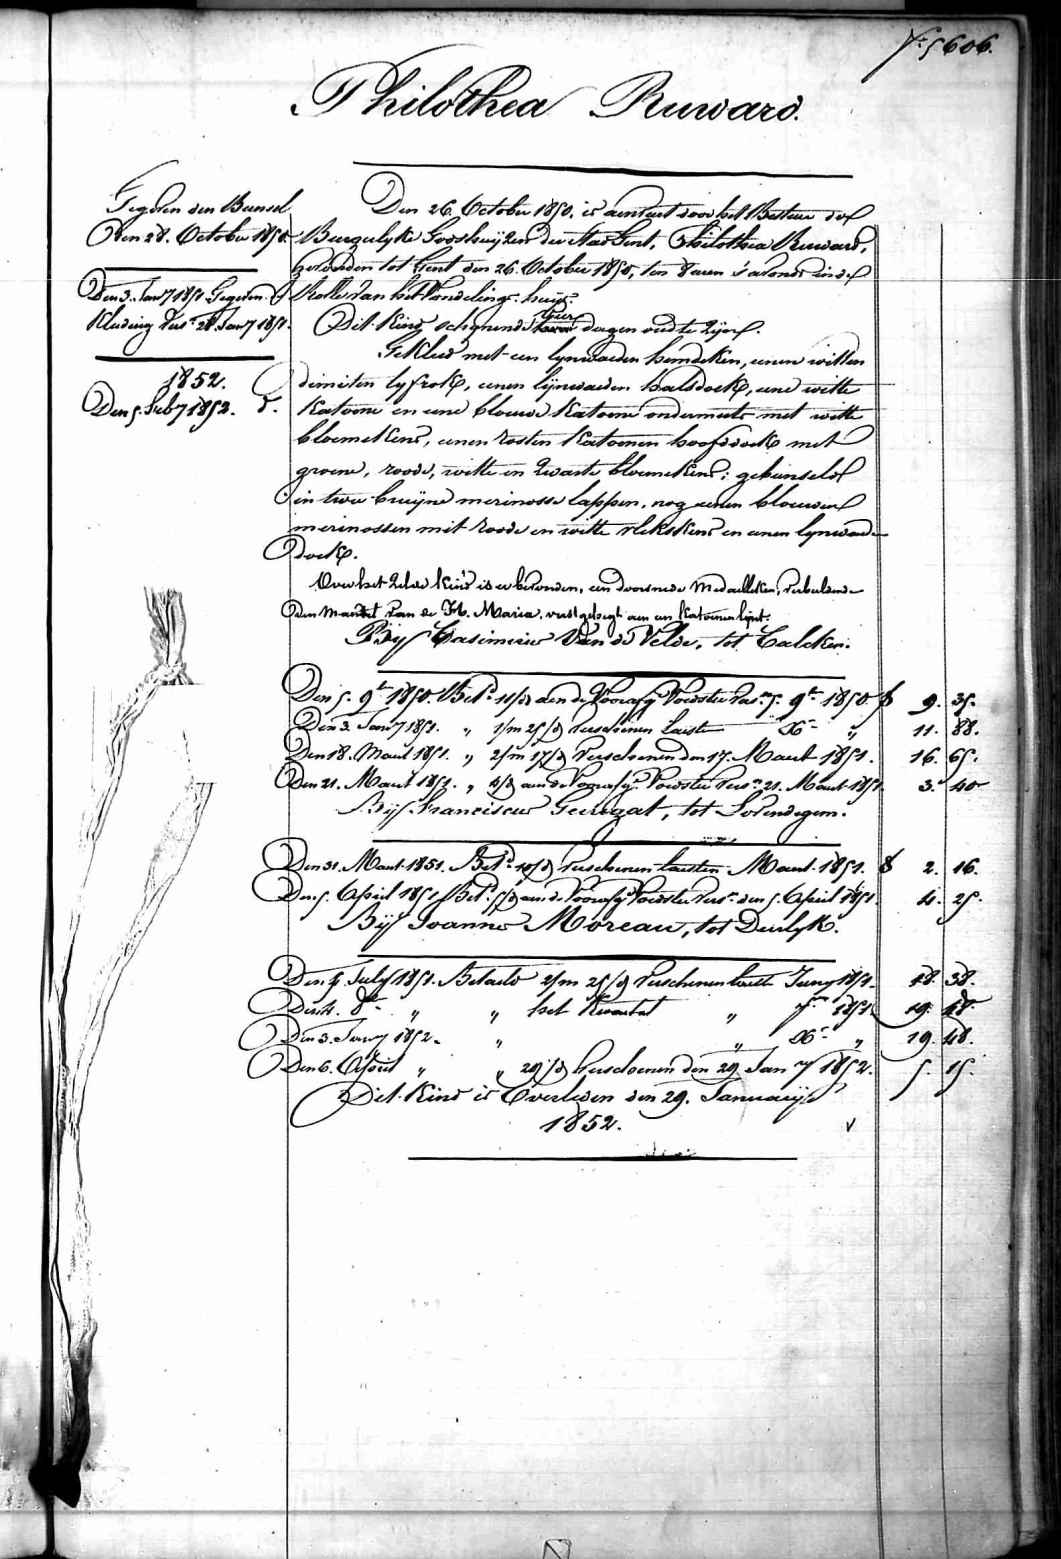 N.º 5606.
Philothea Ruward.
Gegeven den Bunsel
Den 28. October 1850.
Den 3. Jany 1851 Gegeven
Kleding vers.n 28 Jany 1851.
1852.
Den 5. Feby 1852. d.
Den 26. October 1850. is aenveert door het Bestuer der
Burgerlyke Godshuyzen der stad Gent, Philothea Ruward,
bevonden tot Gent den 26. October 1850, ten 8 uren 's avonds in de
Rolle van het Vondelings-huys.
Dit kind schynende vier dagen oud te zyn.
Gekleed met een lynwaeden hemdeken, eenen witten
dimitten lyfrok, eenen lynwaeden halsdoek, eene witte
katoene en eene blouwe katoene ondermuts met witte
bloemekens, eenen rosten katoenen hoofddoek met
groene, roode, witte en zwarte bloemekens; gebunseld
in twee bruyne merinosse lappen, nog eenen blouwen
merinossen met roode en witte vlekskens en eenen lynwaede
doek.
Over het zelve kind is er bevonden, een doorsnede Medailleken, verbeeldende
den mantel van de H. Maria, vastgelegt aen een katoenen lynt.
Bij Casimier Van de Velde, tot Calcken.
Den 5. 9.re 1850. Bet.d 11/d aen de Voorafg. Voedster vers.n 7. 9.re 1850. f 9. 35.
Den 3. Jany 1851. „ 1/m 25/d verschenen laeste X.re „ 11. 88.
Den 18. Maert 1851. „ 2/m 17/d verschenen den 17. Maert 1851. 16. 65.
Den 21. Maert 1851. „ 4/d aen de Voorafg. Voedster vers.n 21. Maert 1851. 3. 40
Bij Franciscus Geiregat, tot Lovendegem.
Den 31. Maert 1851. Bet.d 10/d verschenen laesten Maert 1851. f 2. 16.
Den 5. April 1851 Bet.d 5/d aen de Voorafg. Voedster vers.n den 5. April 1851. 4. 25.
Bij Joannes Moreau, tot Deurlyk.
Den 4. July 1851. Betaeld 2/m 25/d verschenen laeste Juny 1851. 18. 38.
Den 4. 8.re „ „ het Kwartael „ 7.re 1851. 19. 48.
Den 3. Jany 1852. „ „ X.re „ 19. 48.
Den 6. April „ „ 29/d verschenen den 29 Jany 1852. 5. 15.
Dit kind is Overleden den 29. January
1852.